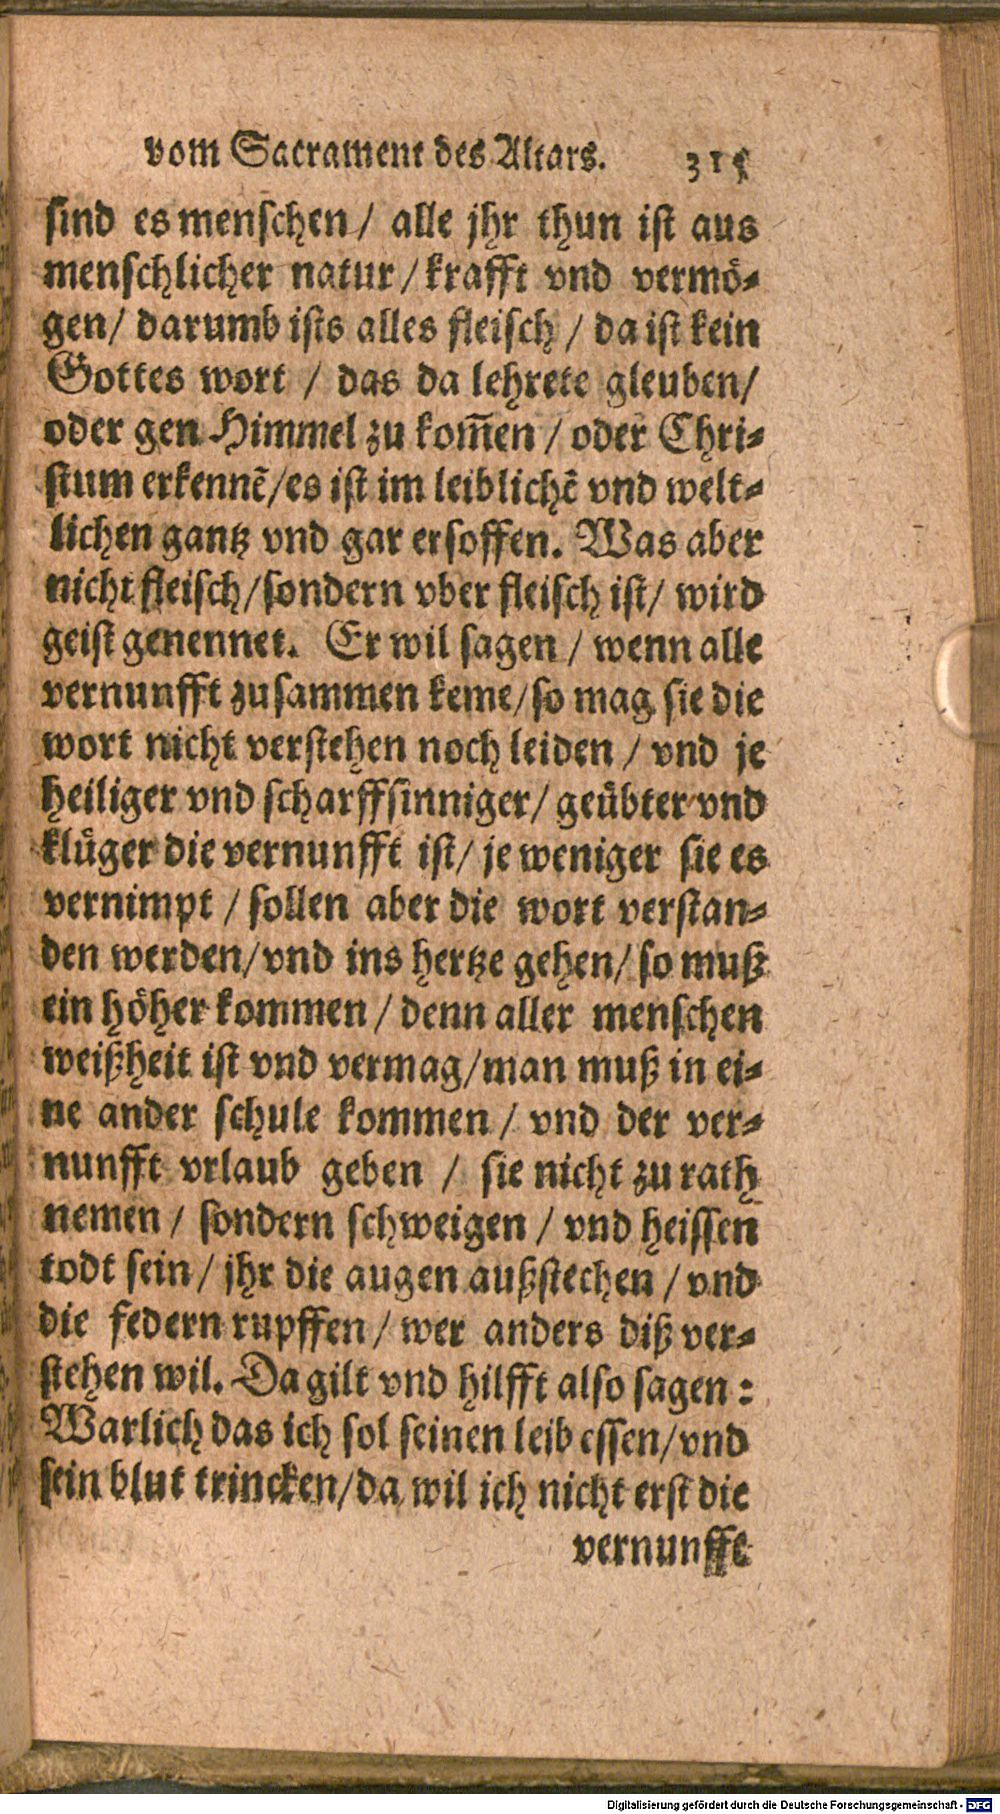 vom Sacrament des Altars. 315
sind es menschen/ alle jhr thun ist aus
menschlicher natur/ krafft vnd vermö-
gen/ darumb ists alles fleisch / da ist kein
Gottes wort / das da lehrete gleuben/
oder gen Himmel zu kom̄en / oder Chri-
stum erkennē/ es ist im leiblichē vnd welt-
lichen gantz vnd gar ersoffen. Was aber
nicht fleisch/ sondern vber fleisch ist/ wird
geist genennet. Er wil sagen / wenn alle
vernunfft zusammen keme/ so mag sie die
wort nicht verstehen noch leiden / vnd je
heiliger vnd scharffsinniger/ geübter vnd
klüger die vernunfft ist/ je weniger sie es
vernimpt / sollen aber die wort verstan-
den werden/ vnd ins hertze gehen/ so muß
ein höher kommen / denn aller menschen
weißheit ist vnd vermag/ man muß in ei-
ne ander schule kommen / vnd der ver-
nunfft vrlaub geben / sie nicht zu rath
nemen / sondern schweigen / vnd heissen
todt sein / jhr die augen außstechen / vnd
die federn rupffen / wer anders diß ver-
stehen wil. Da gilt vnd hilfft also sagen:
Warlich das ich sol seinen leib essen/ vnd
sein blut trincken/ da wil ich nicht erst die
vernunfft
Digitalisierung gefördert durch die Deutsche Forschungsgemeinschaft - DFG